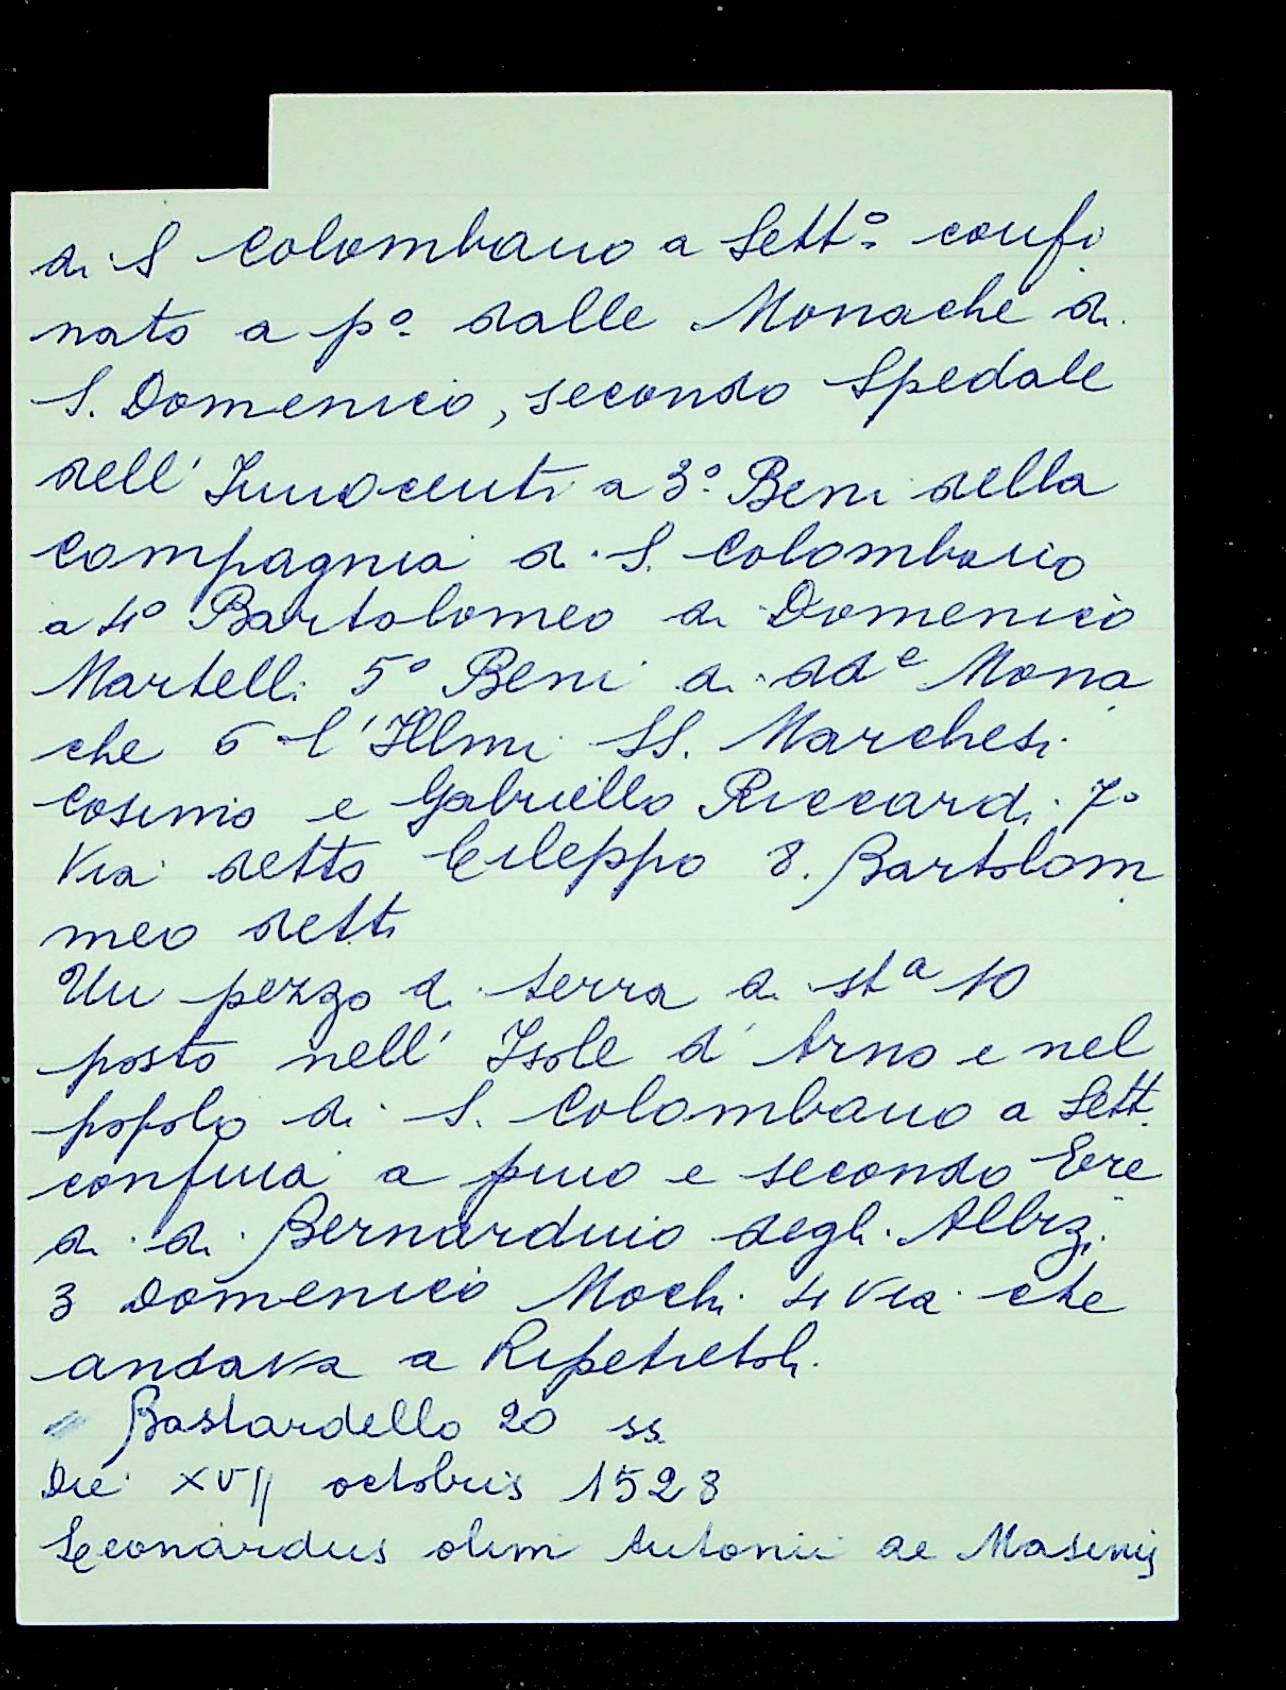 di S Colombano a Settº confi
nato a pº dalle Monache di
S. Domenico, secondo Spedale
dell' Innocenti a 3º Beni della
Compagnia di S. Colombano
a 4º Bartolomeo di Domenico
Martelli 5º Beni di ddᵉ Mona
che 6 l'Illmi SS. Marchesi
Cosimo e Gabriello Riccardi 7º
Via detto Cileppo 8. Bartolom
meo detti
Un pezzo di terra di stª 10
posto nell' Isole d' Arno e nel
popolo di S. Colombano a Sett.
confina a pmo e secondo Ere
di di Bernardino degli Albizi
3 Domenico Mochi 4 Via che
andava a Ripetietoli
Bastardello 20 ss.
Die XVII octobris 1528
Leonardus olim Antonii de Masinis